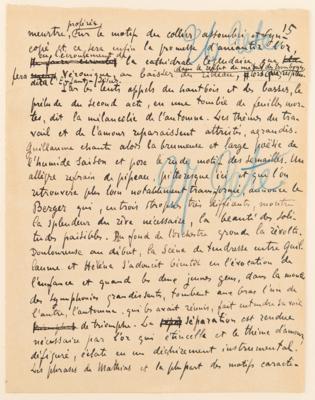 préférée 15
meurtre. Sur le motif du collier assombri et syn-
copé et ce sera enfin la promesse d'amonceler l'or,
la cathédrale légendaire que
fera Véronique, au baiser du rideau,
Par de lents appels du hautbois et des basses, le
prélude du second acte, en une tombée de feuilles mor-
tes, dit la mélancolie de l'automne. Les thèmes du tra-
vail et de l'amour reparaissent attristés, agrandis.
Guillaume chante alors la brumeuse et large poésie de
l'humide saison et pose le rude motif des semailles. Un
allègre refrain de pipeau, pittoresque ici et que l'on
retrouvera plus loin notablement transformé annonce le
Berger qui, en trois strophes très édifiantes, montre
la splendeur du rêve nécessaire, la beauté des soli-
tudes paisibles. Au fond de l'orchestre gronde la révolte.
Douloureuse au début, la scène de tendresse entre Guil-
laume et Hélène s'adoucit bientôt en l'évocation de
l'enfance et quand les deux jeunes gens, dans la montée
des symphonies grandissantes, tombent aux bras l'un de
l'autre, l'automne, qui les avait réunis, fait entendre sa voix
de triomphe. La séparation est rendue
nécessaire par l'or qui étincelle et le thème d'amour,
défiguré, éclate en un déchirement instrumental.
Les phrases de Mathias et la plupart des motifs caracté-